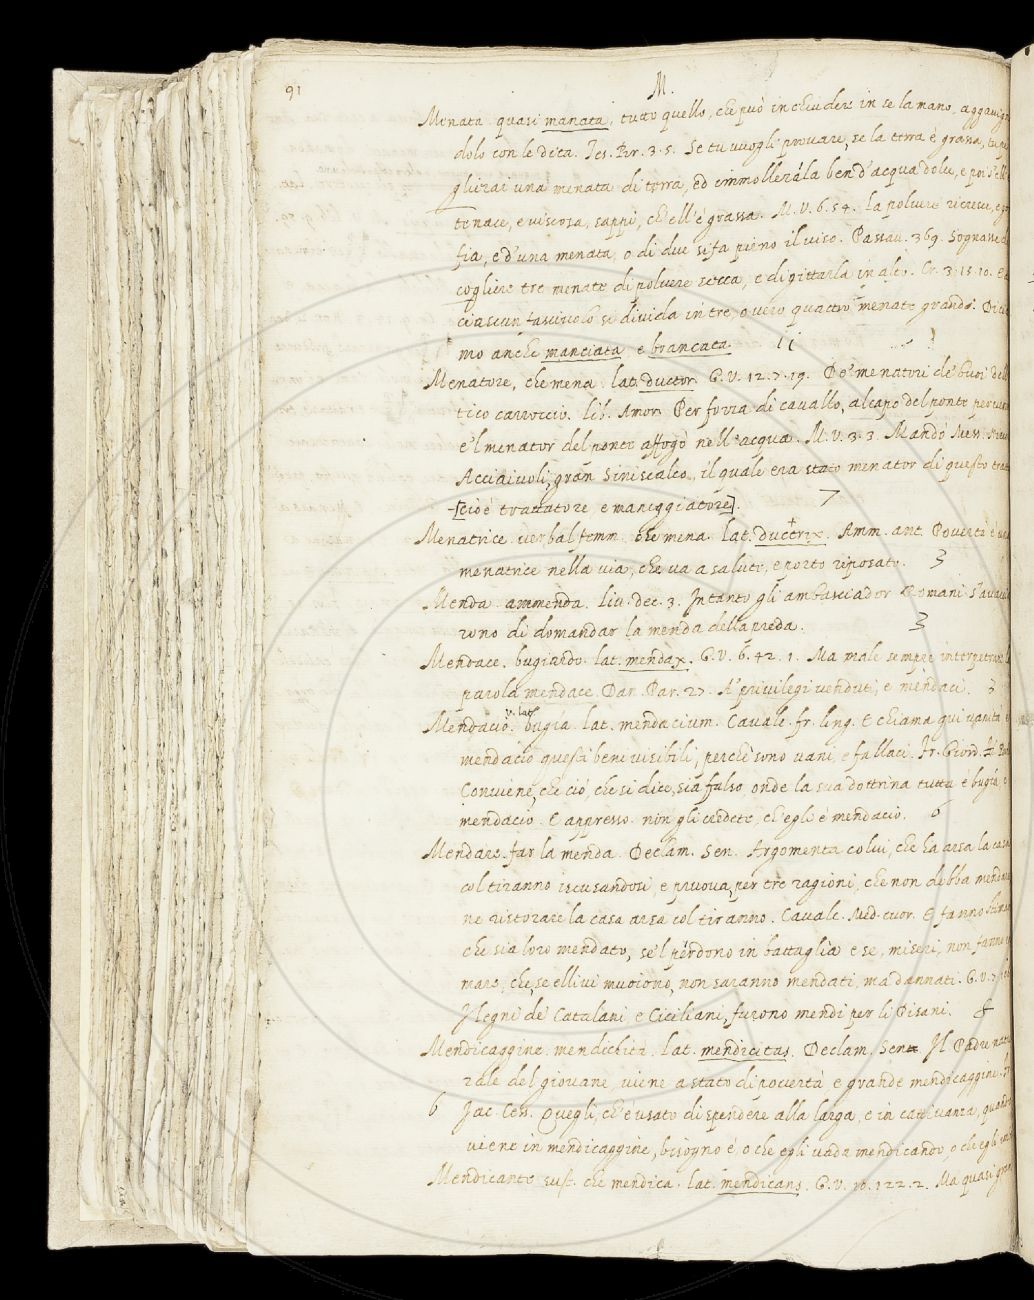 91
M.
Menata. quasi manata, tutto quello, che può inchiudere in se la mano, aggavign
dolo con le dita. Tes. Pov. 3. 5. Se tu vuogli provare, se la terra è grassa, tu pi
glierai una menata di terra, ed immollerála ben d'acqua dolce, e poi s'ell'
tenace, e viscosa, sappi, ch'ell'è grassa. M.V. 6. 54. la polvere ricresce, e
fia, e d'una menata, o di due si fa pieno il viso. Passav. 369. Sognava di
cogliere tre menate di polvere secca, e di gittarla in alto. Cr. 3. 15. 10. E
ciascun fascicolo si divida in tre, o vero quattro menate grandi. Dicia
mo anche manciata e brancata. 11
Menatore, che mena. lat. ductor. G.V. 12. 7. 19. De' menatori de' buoi del
tico carroccio. lib. Amor. Per forza di cavallo, al capo del ponte pervenn
e 'l menator del ponte affogò nell'acqua. M.V. 3. 3. Mandò Mess. Nicol
Acciaiuoli, gran Siniscalco, il quale era stato menator di questo tratt
[cioè trattatore, e maneggiatore]. 7
Menatrice verbal femm. che mena. lat. ductrix. Amm. ant. Povertà è una
menatrice nella via, che va a salute, e porto riposato. 3
Menda. ammenda. Liv. dec. 3. Intanto gli ambasciador Romani s'avacci
rono di domandar la menda della preda. 3
Mendace. bugiardo. lat. mendax. G.V. 6. 42. 1. Ma male sempre interpetran la
parola mendace. Dan. Par. 27. A' privilegi venduti, e mendaci. 3
Mendacio. v. lat. bugia. lat. mendacium. Cavalc. fr. ling. E chiama qui vanità e
mendacio questi beni visibili, perchè sono vani, e fallaci. Fr. Giord.
Conviene, che ciò, che si dice, sia falso, onde la sua dottrina tutta è bugia, e
mendacio. E appresso. non gli credete, ch'egli è mendacio. 6
Mendare. far la menda. Declam. Sen. Argomenta colui, che ha arsa la casa
col tiranno iscusandosi e pruova per tre ragioni, che non debba mendare
ne ristorare la casa arsa col tiranno. Cavalc. Med. cuor. E fanno
che sia loro mendato, se 'l pérdono in battaglia e se, miseri, non fanno
mare, che, se ellivi muoiono, non saranno mendati, ma dannati. G.V. 7.
I legni de' Catalani e Ciciliani, furono mendi per li Pisani. &
Mendicaggine. mendichità. lat. mendicitas. Declam. Sen. Il Padre natu
rale del giovane, viene a stato di povertà e grande mendicaggine.
6 Jac. Cess. Quegli, ch'è usato di spendere alla larga, e in cattivanza, quando
viene in mendicaggine, bisogno è, o che egli vada mendicando, o che egli
Mendicante sust. che mendica. lat. mendicans. G.V. 10. 122. 2. Ma quasi gran